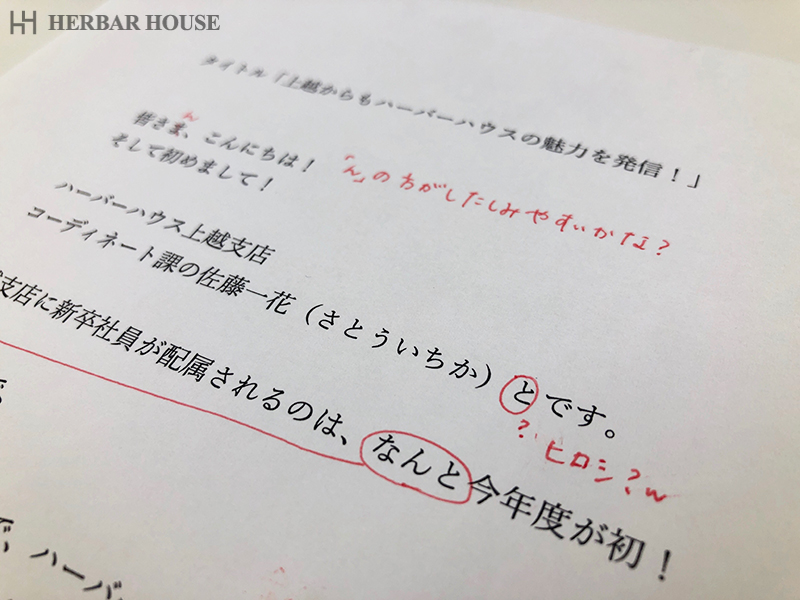 HERBAR HOUSE
タイトル「上越からもハーバーハウスの魅力を発信！」
ん
皆さま、こんにちは！
「ん」の方がしたしみやすいかな？
そして初めまして！
ハーバーハウス上越支店
コーディネート課の佐藤一花（さとういちか）とです。
？ヒロシ？w
支店に新卒社員が配属されるのは、なんと今年度が初！
、ハーバー